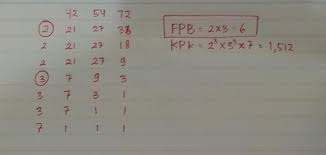 42 54 72
2 21 27 36
2 21 27 18
2 21 27 9
3 7 9 3
3 7 3 1
3 7 1 1
7 1 1 1
FPB = 2x3 = 6
KPK = 2³ x 3³ x 7 = 1,512